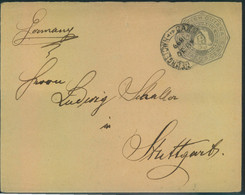 Germany
Herrn
Ludwig Schaller
in
Stuttgart